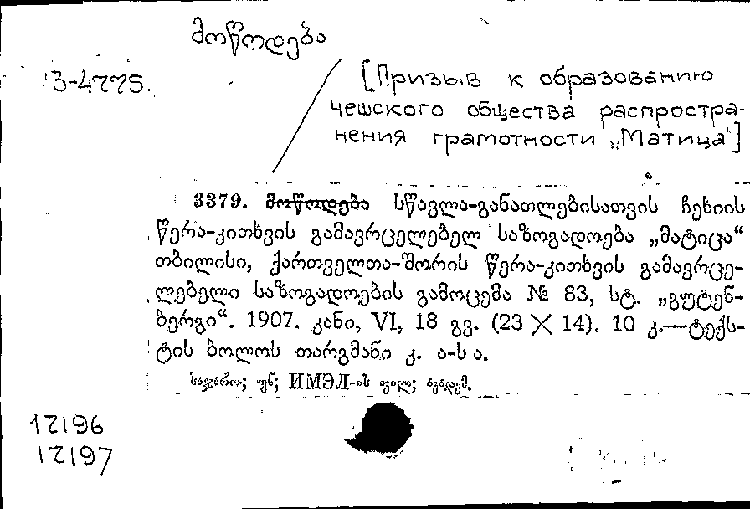 მოწოდება
3-4775.
[Призыв к образованию
чешского общества распростра-
нения грамотности „Матица“]
3379. მოწოდება სწავლა-განათლებისათვის ჩეხიის
წერა-კითხვის გამავრცელებელ საზოგადოება „მატიცა“
თბილისი, ქართველთა-შორის წერა-კითხვის გამავრცე-
ლებელი საზოგადოების გამოცემა № 83, სტ. „გუტენ-
ბერგი“. 1907. კანი, VI, 18 გვ. (23 X 14). 10 კ.—ტექს-
ტის ბოლოს თარგმანი კ. ა-ს ა.
საჯარო; უნ; ИМЭЛ-ის ფილ; აკადემ.
12196
12197